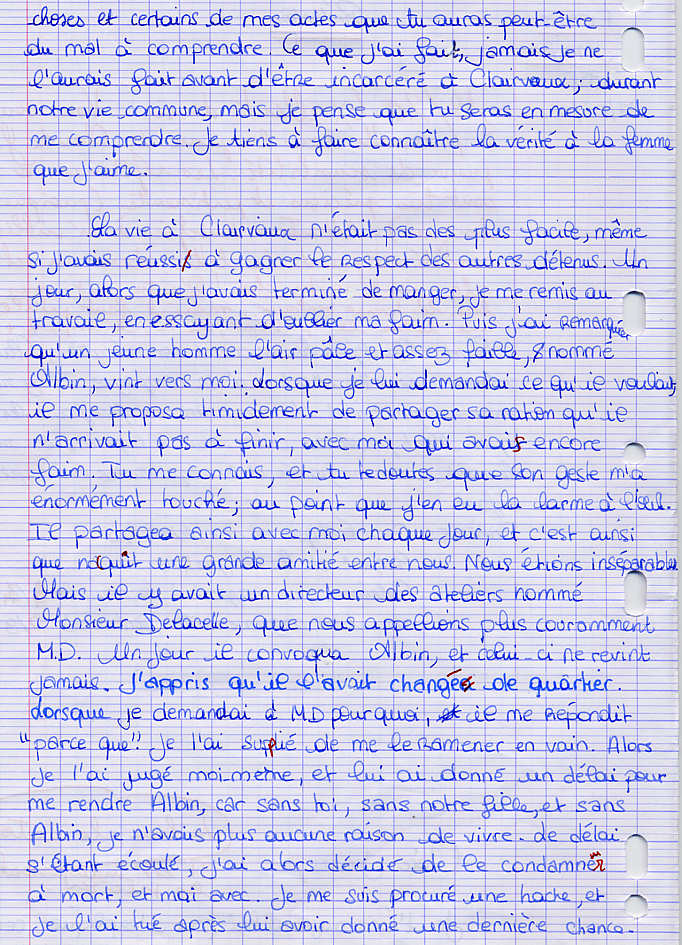 choses et certains de mes actes que tu auras peut-être
du mal à comprendre. Ce que j'ai fait, jamais je ne
l'aurais fait avant d'être incarcéré à Clairvaux; durant
notre vie commune, mais je pense que tu seras en mesure de
me comprendre. Je tiens à faire connaître la vérité à la femme
que j'aime.
La vie à Clairvaux n'était pas des plus facile, même
si j'avais réussi à gagner le respect des autres détenus. Un
jour, alors que j'avais terminé de manger, je me remis au
travail, en essayant d'oublier ma faim. Puis j'ai remarquer
qu'un jeune homme l'air pâle et assez faible, nommé
Albin, vint vers moi. Lorsque je lui demandai ce qu'il voulait,
il me proposa timidement de partager sa ration qu'il
n'arrivait pas à finir, avec moi qui avais encore
faim. Tu me connais, et tu te doutes que son geste m'a
énormément touché; au point que j'en eu la larme à l'œil.
Il partagea ainsi avec moi chaque jour, et c'est ainsi
que naquit une grande amitié entre nous. Nous étions inséparable
Mais il y avait un directeur des ateliers nommé
Monsieur Delacelle, que nous appellions plus couramment
M.D. Un jour il convoqua Albin, et celui-ci ne revint
jamais. J'appris qu'il l'avait changé de quartier.
Lorsque je demandai à MD pourquoi, il me répondit
"parce que". Je l'ai supplié de me le ramener en vain. Alors
je l'ai jugé moi-même, et lui ai donné un délai pour
me rendre Albin, car sans toi, sans notre fille, et sans
Albin, je n'avais plus aucune raison de vivre. Le délai
s'étant écoulé, j'ai alors décidé de le condamner
à mort, et moi avec. Je me suis procuré une hache, et
je l'ai tué après lui avoir donné une dernière chance.